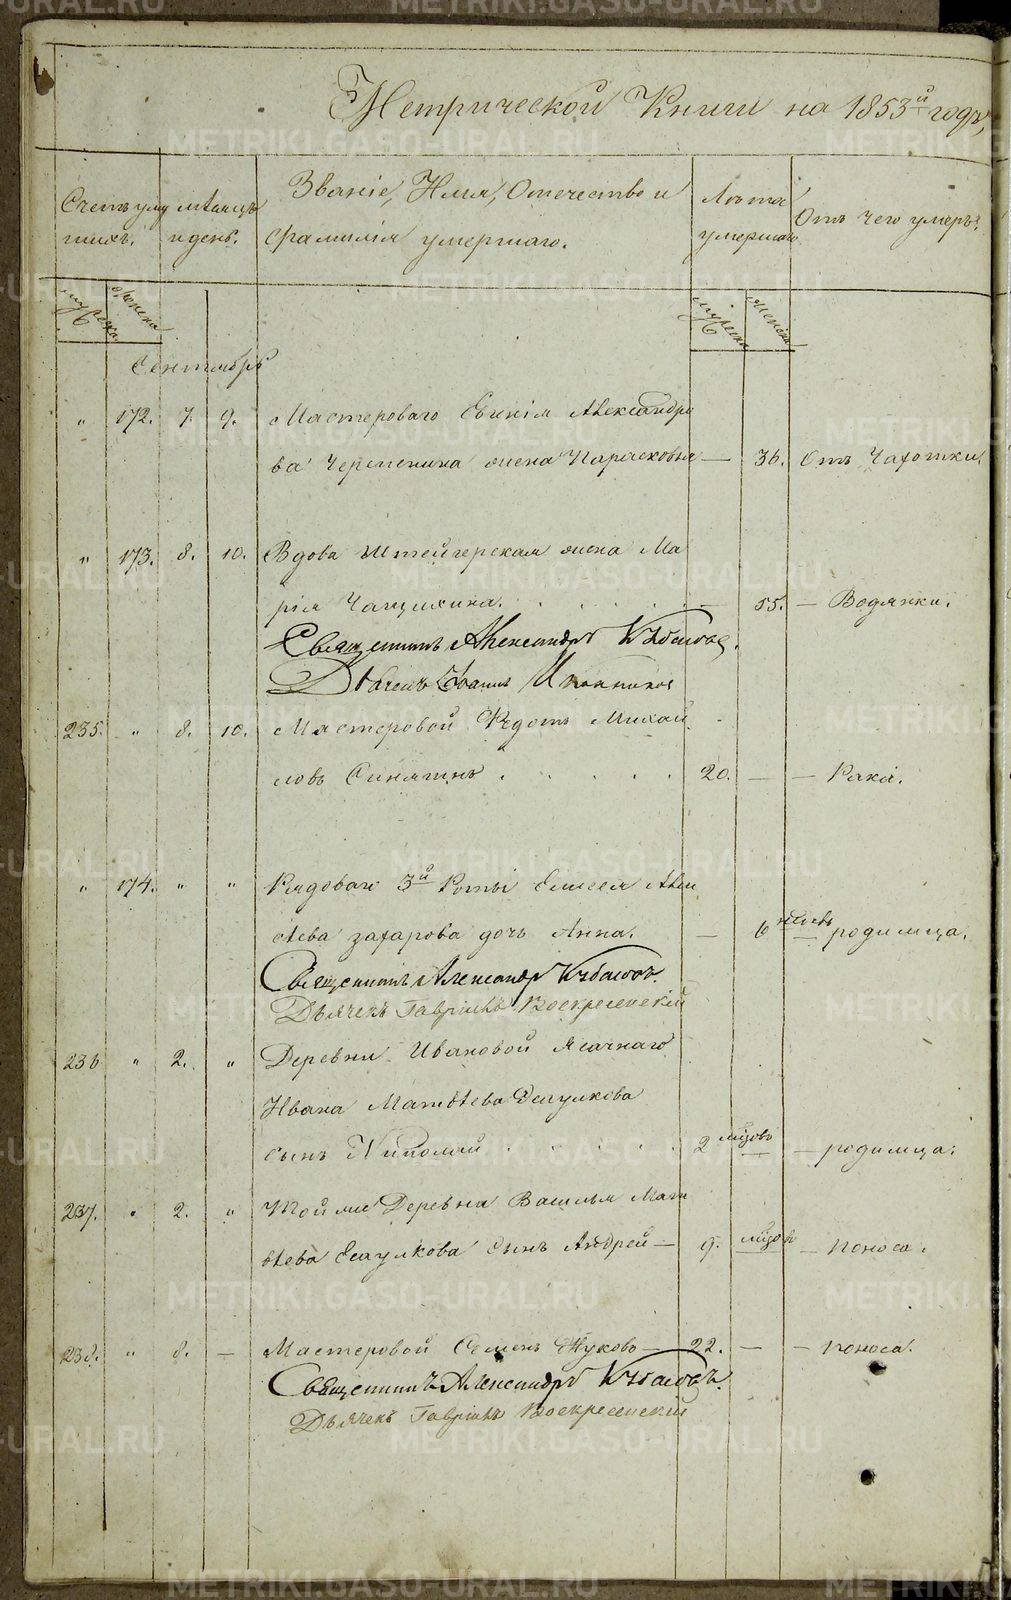 Метрической Книги на 1853й годъ,
Счетъ умер
шихъ.
мѣсяцъ
и день.
Званіе, Имя, Отечество и
фамилія умершаго.
Лѣта
умершаго
Отъ чего умеръ.
мужеска
женска
мужеска
женска
Сентябрь
" 172. 7. 9. Мастероваго Евгенія Александро
ва Черепенина жена Парасковья — 36. Отъ Чахотки
" 173. 8. 10. Вдова Штейгерская жена Ма
рія Чащихина. — 55. — Водянки.
Священникъ Александръ
Дьячекъ Иванъ
235. " 8. 10. Мастеровой Федотъ Михай
ловъ Синягинъ 20. — — Рака.
" 174. " " Рядоваго 3й Роты Елисея Авде
ѣева Захарова дочь Анна. — 6 — родимца.
Священникъ Александръ
Дьячекъ Гавріилъ Воскресенскій
236 " 2. " Деревни Ивановой Ясачнаго
Ивана Матвѣева Есаулкова
сынъ Николай 2 мѣсяцовъ — родимца.
237. " 2. " Той же Деревни Василья Мат
вѣева Есаулкова сынъ Андрей — 9. мѣсяцовъ — поноса.
238. " 8. — Мастеровой Семенъ Жуковъ — 22. — — поноса.
Священникъ Александръ
Дьячекъ Гавріилъ Воскресенскій
METRIKI.GASO-URAL.RU